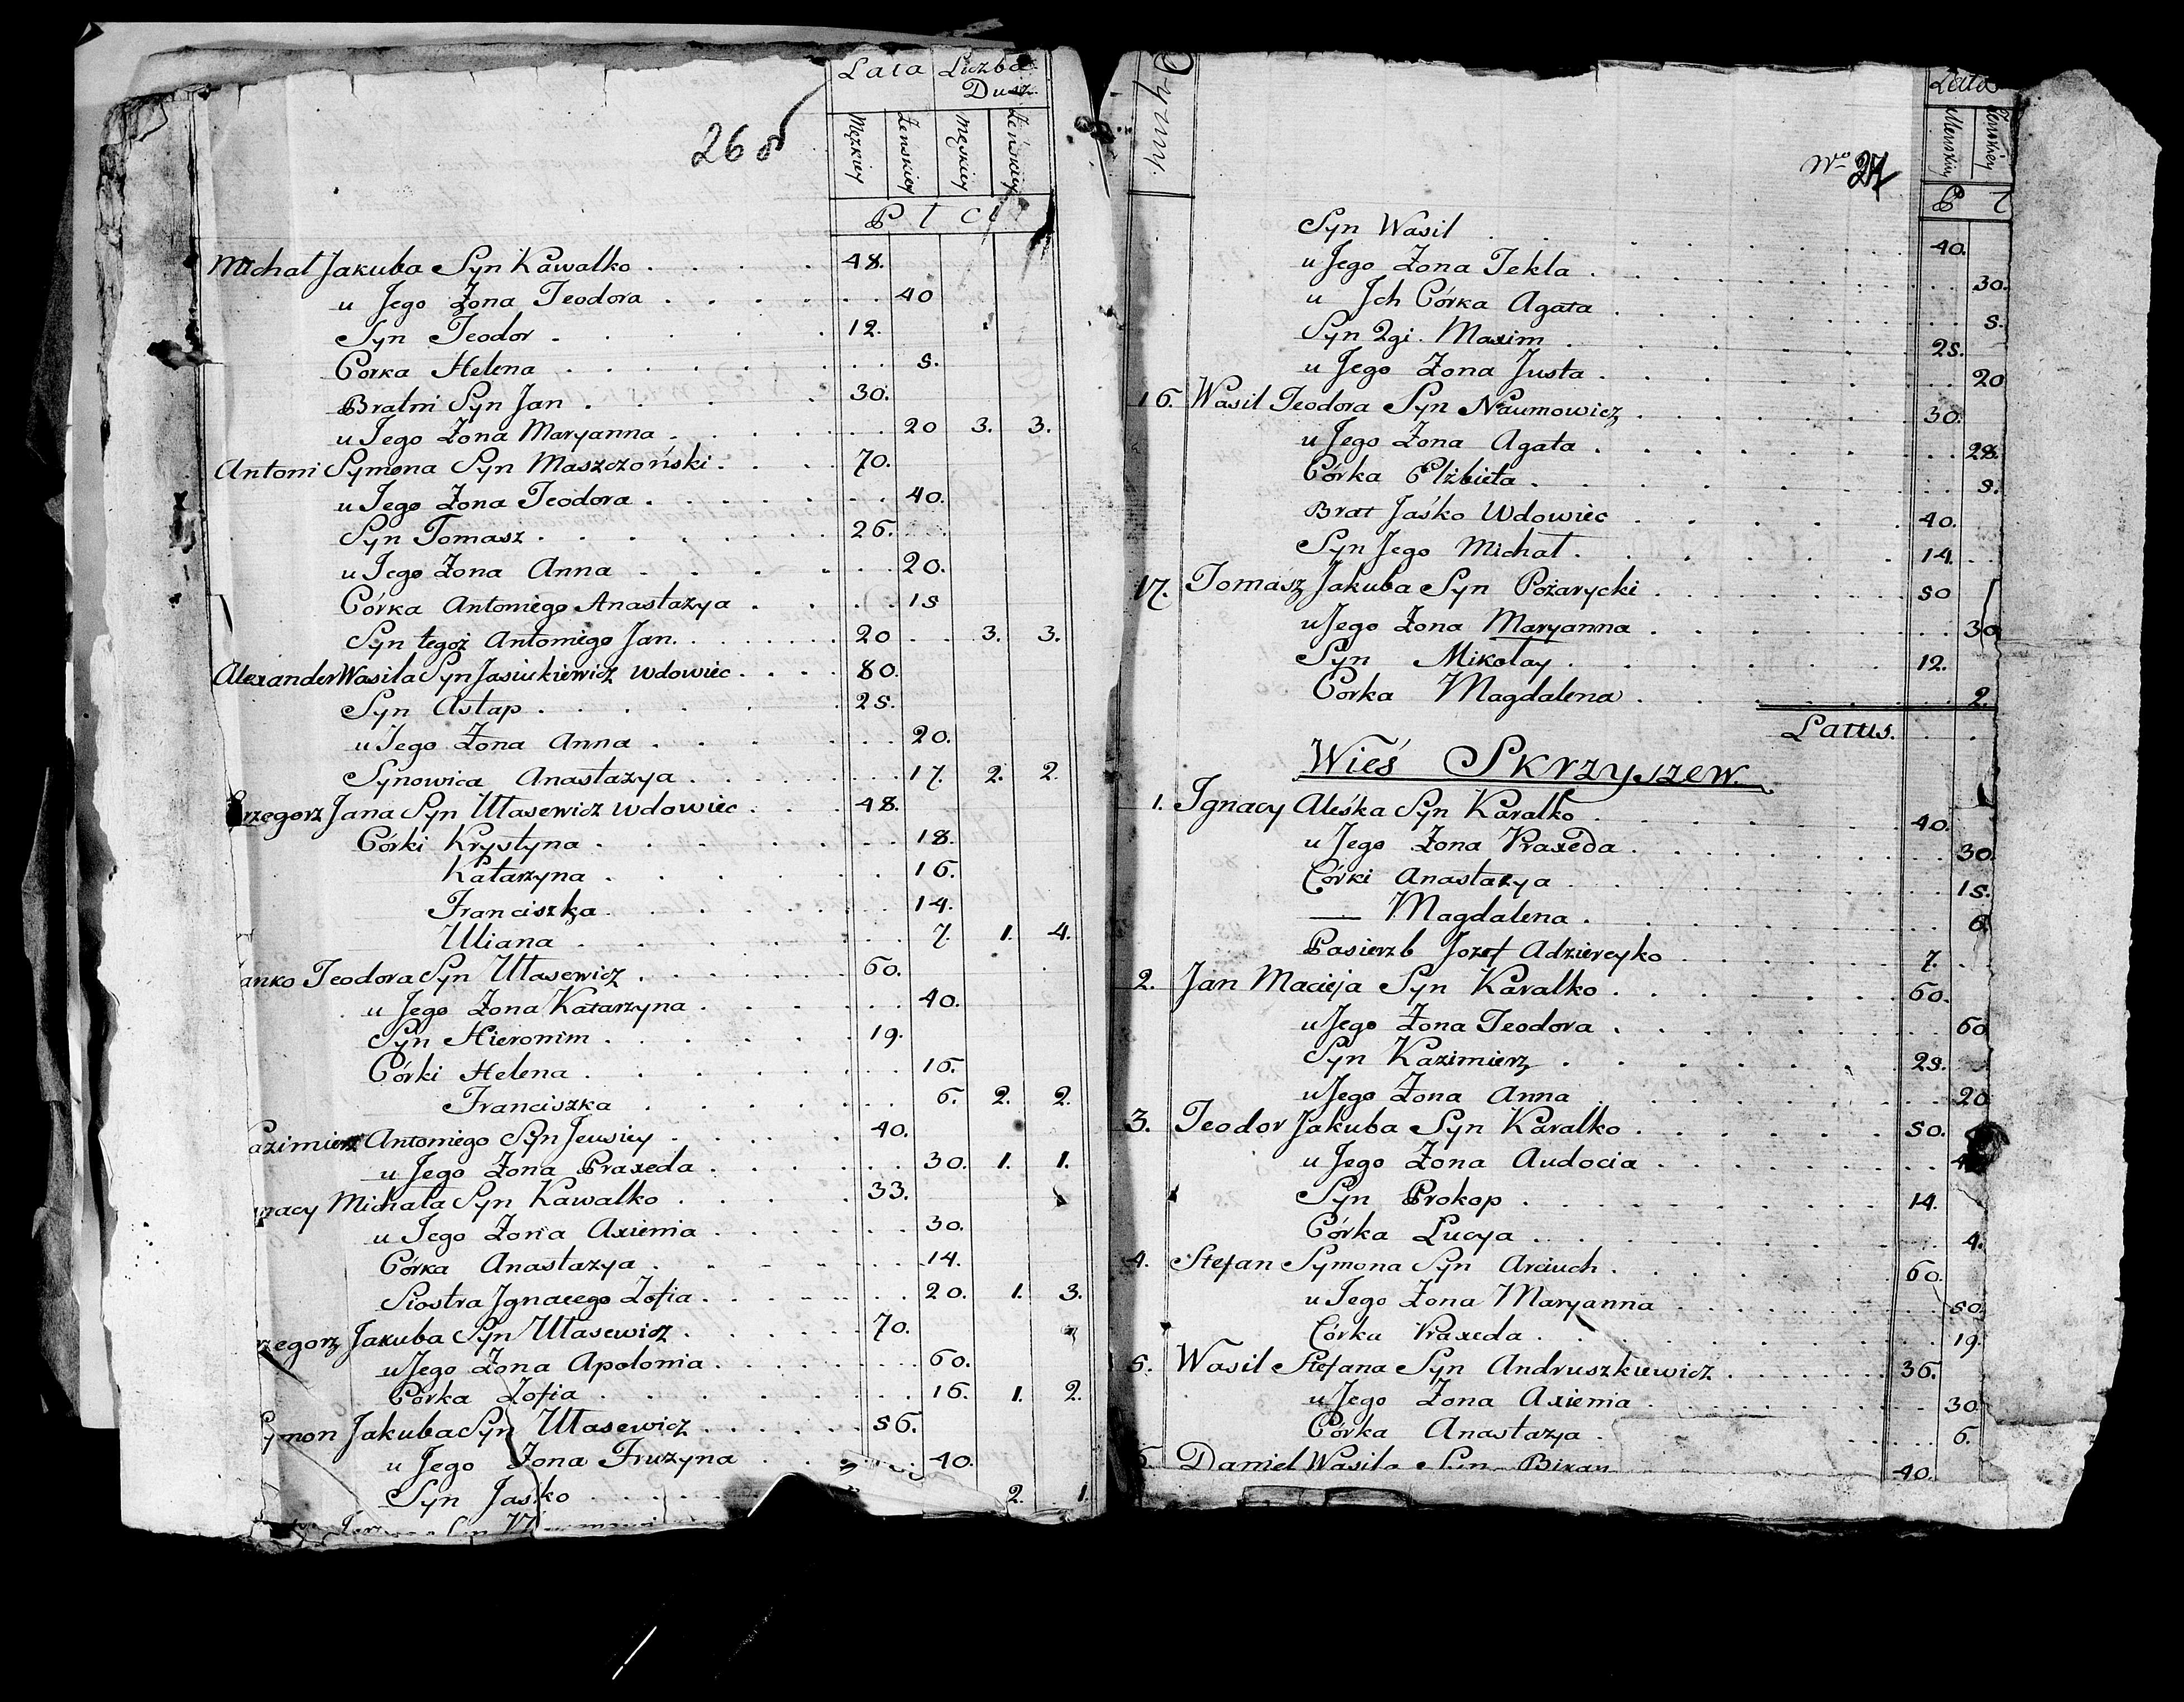 26 б
Lata Liczba
Dusz
Męzkiey Zenskiey męskiey Zeńskiey
P l c i
Michał Jakuba Syn Kawalko . . . . 48.
u Jego Żona Teodora . . . . 40
Syn Teodor . . . . 12.
Corka Helena . . . . s.
Bratni Syn Jan . . . . 30.
u Jego Żona Maryanna . . . . 20 3. 3.
Antoni Symona Syn Maszczoński . . . . 70.
u Jego Żona Teodora . . . . 40.
Syn Tomasz . . . . 26.
u Jego Żona Anna . . . . 20.
Córka Antoniego Anastazya . . . . 1s
Syn tegoż Antoniego Jan . . . . 20 3. 3.
Alexander Wasila Syn Jasiukiewicz wdowiec . . . . 80.
Syn Astap . . . . 2s.
u Jego Żona Anna . . . . 20.
Synowica Anastazya . . . . 17. 2. 2.
rzegorz Jana Syn Ułasewicz wdowiec . . . 48.
Córki Krystyna . . . . 18.
Katarzyna . . . . 16.
Franciszka . . . . 14.
Uliana . . . . 7. 1. 4.
anko Teodora Syn Ułasewicz . . . . 60.
u Jego Żona Katarzyna . . . . 40.
Syn Hieronim . . . . 19.
Córki Helena . . . . 16.
Franciszka . . . . 6. 2. 2.
azimierz Antoniego Syn Jeusiey . . . . 40.
u Jego Żona Praxeda . . . . 30. 1. 1.
nacy Michała Syn Kawalko . . . . 33.
u Jego Żona Axienia . . . . 30.
Córka Anastazya . . . . 14.
Siostra Jgnacego Zofia . . . . 20. 1. 3.
rzegorz Jakuba Syn Ułasewicz . . . . 70.
u Jego Żona Apolonia . . . . 60.
Córka Zofia . . . . 16. 1. 2.
ymon Jakuba Syn Ułasewicz . . . . s6.
u Jego Żona Fruzyna . . . . 40.
Syn Jasko . . . . 2. 1.
Dymy.
No 27
Lata
Menskiey Zenskiey
P l
Syn Wasil . . . . 40.
u Jego Żona Tekla . . . . 30.
u Jch Córka Agata . . . . s.
Syn 2gi Maxim . . . . 2s.
u Jego Żona Justa . . . . 20
16. Wasil Teodora Syn Naumowicz . . . . 30.
u Jego Żona Agata . . . . 28.
Córka Elżbieta . . . . s.
Brat Jaśko Wdowiec . . . . 40.
Syn Jego Michał . . . . 14.
17. Tomasz Jakuba Syn Pożarycki . . . . s0
u Jego Żona Maryanna . . . . 30
Syn Mikołay . . . . 12.
Corka Magdalena . . . . 2.
Latus.
Wieś Skrzyszew.
1. Jgnacy Aleśka Syn Karalko . . . . 40.
u Jego Żona Praxeda . . . . 30.
Córki Anastazya . . . . 1s.
— Magdalena . . . . 6.
Pasierzb Jozef Adziereyko . . . . 7.
2. Jan Macieja Syn Karalko . . . . 60.
u Jego Żona Teodora . . . . 60
Syn Kazimierz . . . . 2s.
u Jego Żona Anna . . . . 20
3. Teodor Jakuba Syn Karalko . . . . s0.
u Jego Żona Audocia . . . . 4
Syn Prokop . . . . 14.
Córka Lucya . . . . 4.
4. Stefan Symona Syn Arciuch . . . . 60.
u Jego Żona Maryanna . . . . s0.
Córka Praxeda . . . . 19.
s. Wasil Stefana Syn Andruszkiewicz . . . . 36.
u Jego Żona Axienia . . . . 30.
Córka Anastazya . . . . 6.
6. Daniel Wasila Syn Biran 40.